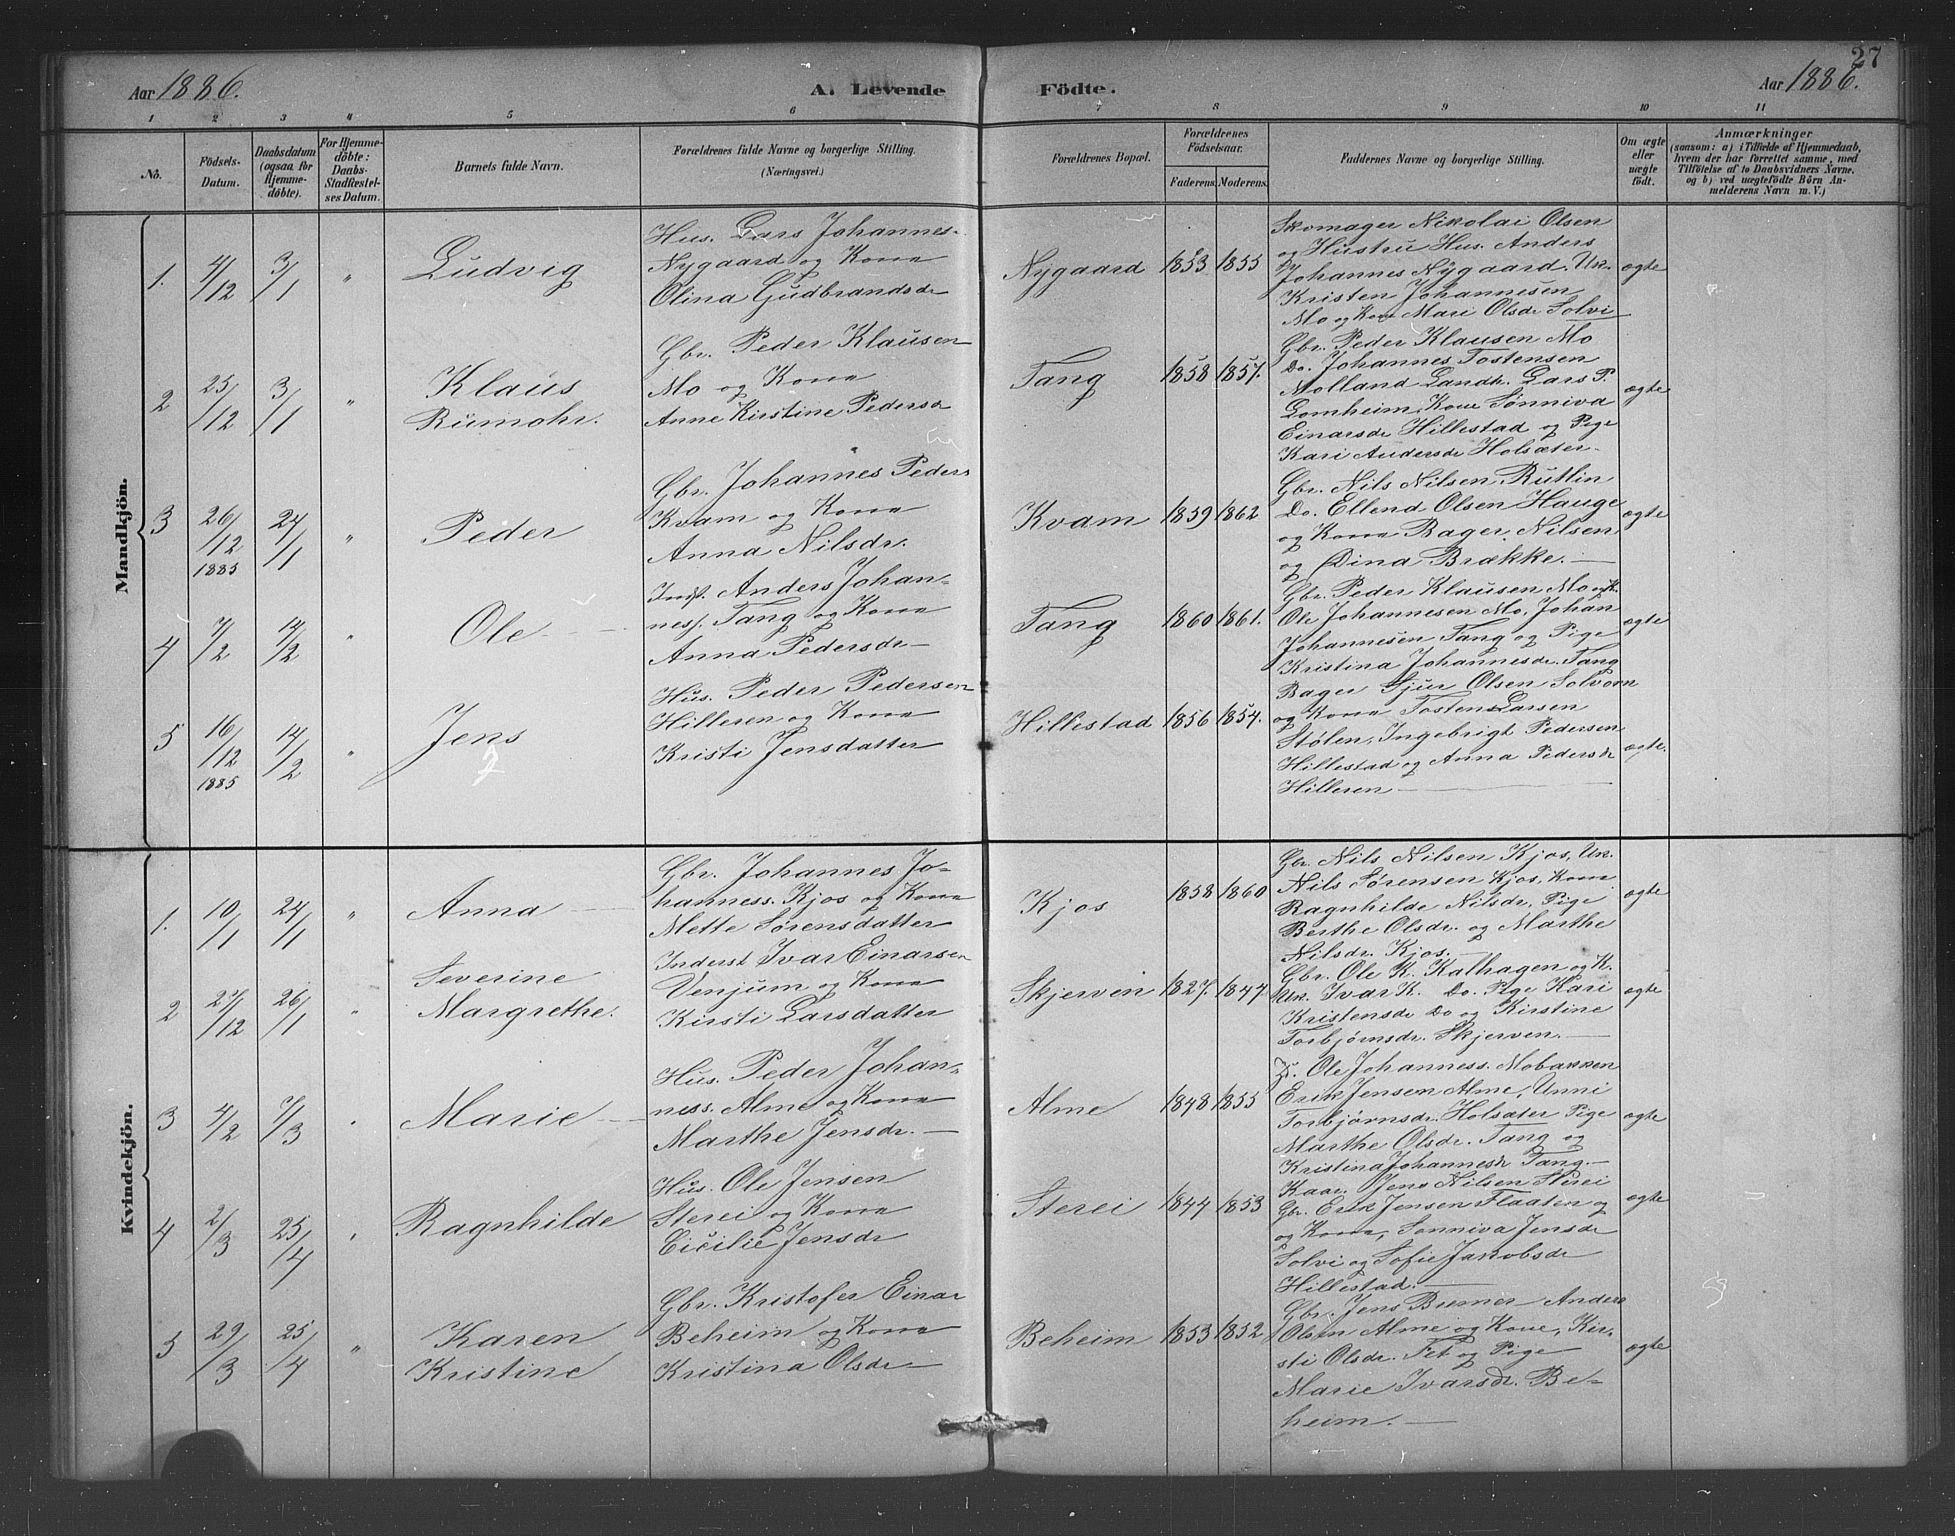 Aar 1886. A. Levende Födte. Aar 1886. 27
1 2 3 4 5 6 7 8 9 10 11
No.
Födsels-
Datum.
Daabsdatum
(ogsaa for
Hjemme-
döbte).
For Hjemme-
döbte:
Daabs-
Stadfæstel-
ses Datum.
Barnets fulde Navn.
Forældrenes fulde Navne og borgerlige Stilling.
(Næringsvei.)
Forældrenes Bopæl.
Forældrenes
Födselsaar.
Faderens. Moderens.
Faddernes Navne og borgerlige Stilling.
Om ægte
eller
uægte
födt.
Anmærkninger
(saasom: a) i Tilfælde af Hjemmedaab,
hvem der har forrettet samme, med
Tilföielse af to Daabsvidners Navne.
og b) ved uægtefödte Börn An-
melderens Navn m. V.)
Mandkjön.
1. 4/12 3/1 " Ludvig
Hus. Lars Johannes-
Nygaard og Kona
Olina Gudbrandsdr
Nygaard 1853 1855
Skomager Nikolai Olsen
og Hustru Hus. Anders
Johannes Nygaard. Uk.
Kristen Johannesen
Mo og Kone Mari Olsdr Solvi
ægte
2 25/12 3/1 " Klaus
Rümohr.
Gbr. Peder Klausen
Mo og Kona
Anne Kirstine Pedersd
Tang 1858 1857.
Gbr. Peder Klausen Mo
Do. Johannes Tostensen
Molland Landh. Lars P.
Lomheim, Kone Sønniva
Einarsdr Hillestad og Pige
Kari Andersdr Holsæter.
ægte
3 26/12 1885 24/1 " Peder
Gbr. Johannes Peders
Kvam og Kona
Anna Nilsdr.
Kvam 1859 1862
Gbr. Nils Nilsen Rutlin
Do. Ellend Olsen Hauge
og Kona Bager Nilsen
og Dina Brække.
ægte
4 7/2 14/2 " Ole
Inds. Anders Johan-
ness. Tang og Kona
Anna Pedersdr
Tang 1860 1861.
Gbr. Peder Klausen Mo og K.
Ole Johannesen Mo, Johan
Johannesen Tang og Pige
Kristina Johannesdr. Tang
ægte
5 16/12 1885 14/2 " Jens
Hus. Peder Pedersen
Hilleren og Kona
Kristi Jensdatter
Hillestad 1856 1854.
Bager Sjur Olsen Solvorn
og Kona Tosten Larsen
Stølen, Ingebrigt Pedersen
Hillestad og Anna Pedersdr
Hilleren
ægte.
Kvindekjön.
1. 10/1 24/1 " Anna
Gbr. Johannes Jo-
hanness. Kjos og Kona
Mette Sørensdatter
Kjos 1858 1860
Gbr. Nils Nilsen Kjos, Uk.
Nils Sørensen Kjos, Kona
Ragnhilde Nilsdr, Pige
Berthe Olsdr. og Marthe
Nilsdr. Kjos.
ægte
2 27/12 26/1 " Severine
Margrethe.
Inderst Ivar Einarsen
Venjum og Kona
Kirsti Larsdatter
Skjerven 1827. 1847.
Gbr. Ole K. Kalhagen og K.
Uk. Ivar K. Do. Pige Kari
Kristensdr Do og Kirstine
Torbjørnsdr. Skjerven.
ægte
3 4/2 7/3 " Marie
Hus. Peder Johan-
ness. Alme og Kona
Marthe Jensdr.
Alme 1848 1855
Ole Johanness. Mobakken
Erik Jensen Alme, Unni
Torbjørnsdr. Holsæter Pige
Marthe Olsdr. Tang og
Kristina Johannesdr Tang
ægte
4 2/3 25/4 " Ragnhilde
Hus. Ole Jensen
Sterei og Kona
Cicilie Jensdr
Sterei 1844 1853
Kaar. Jens Nilsen Sterei
Gbr. Erik Jensen Flaaten og
og Kona, Sønniva Jensdr
Solvi og Sofie Jakobsdr
Hillestad.
ægte
5 29/3 25/4 " Karen
Kristine
Gbr. Kristofer Einar
Beheim og Kona
Kristina Olsdr
Beheim 1853 1852
Gbr. Jens Bremer Anders
Olsen Alme og Kone, Kir-
sti Olsdr. Fet og Pige
Marie Ivarsdr. Be-
heim.
ægte